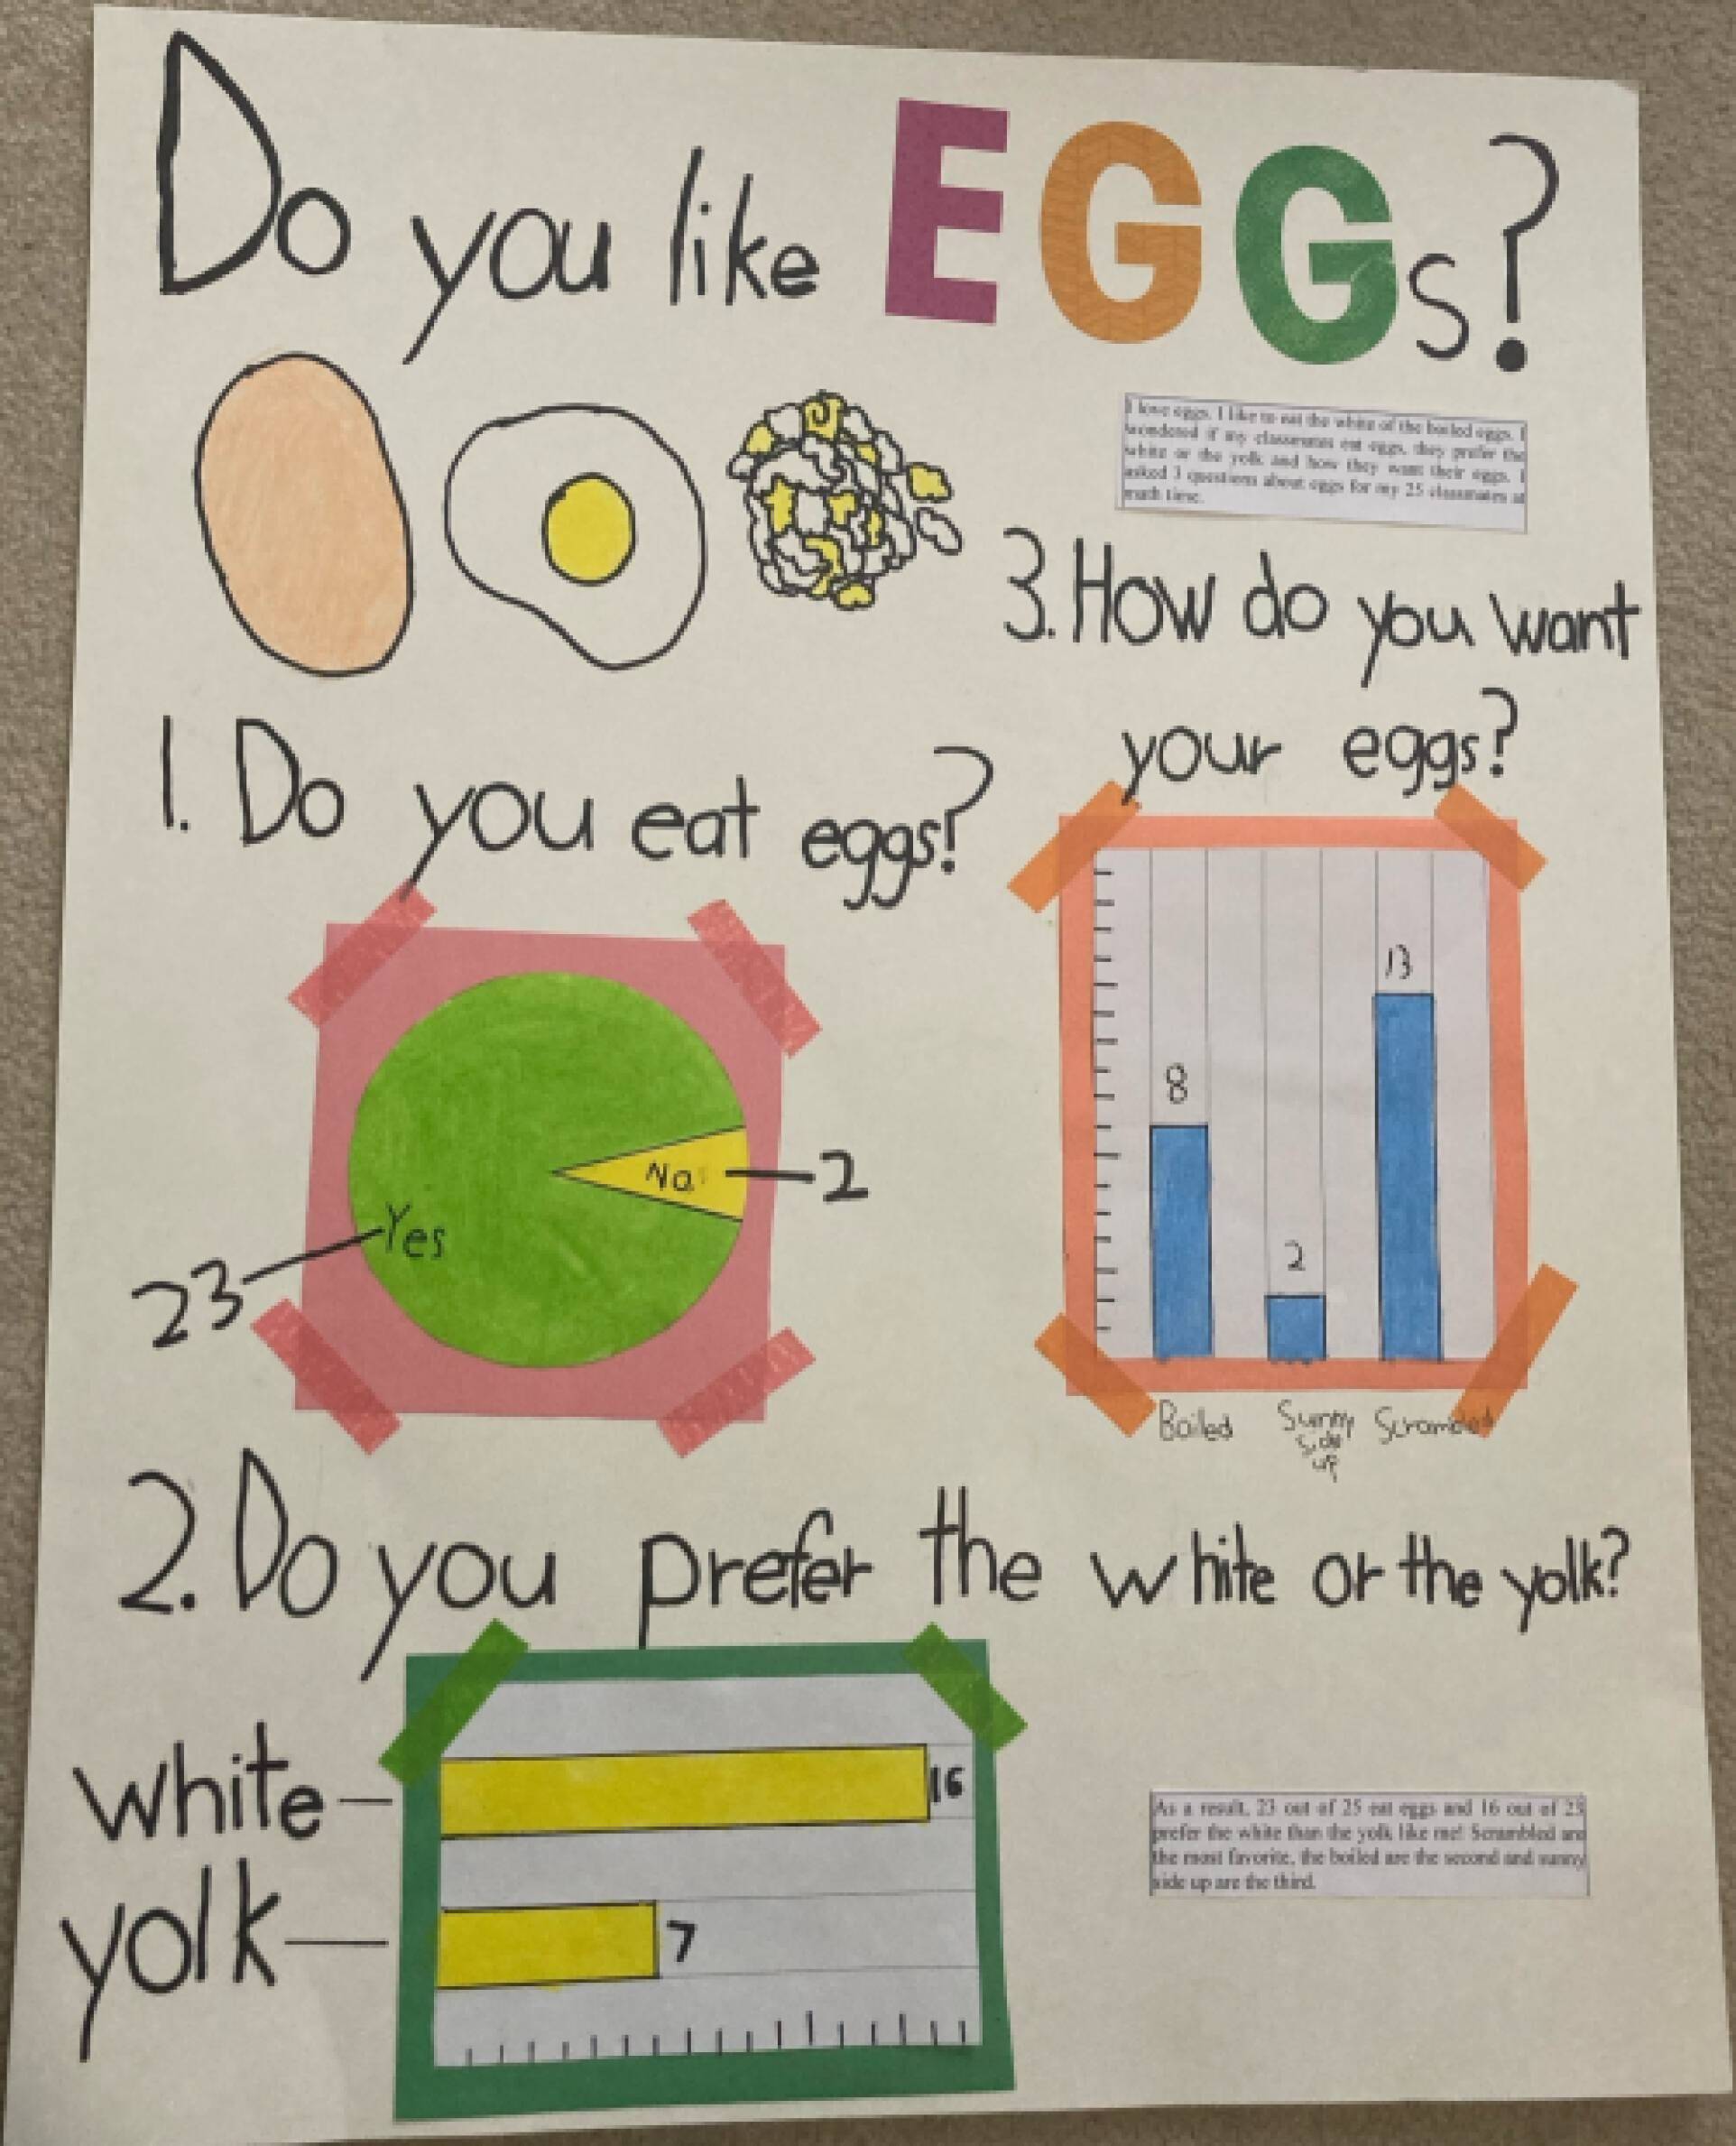 Do you like EGGs?
I love eggs. I like to eat the white of the boiled eggs. I
wondered if my classmates eat eggs, they prefer the
white or the yolk and how they want their eggs. I
asked 3 questions about eggs for my 25 classmates at
math time.
3. How do you want
your eggs?
13
8
2
Boiled Sunny Scrambled
side
up
1. Do you eat eggs?
No 2
Yes
23
2. Do you prefer the white or the yolk?
white 16
yolk 7
As a result, 23 out of 25 eat eggs and 16 out of 23
prefer the white than the yolk like me! Scrambled are
the most favorite, the boiled are the second and sunny
side up are the third.